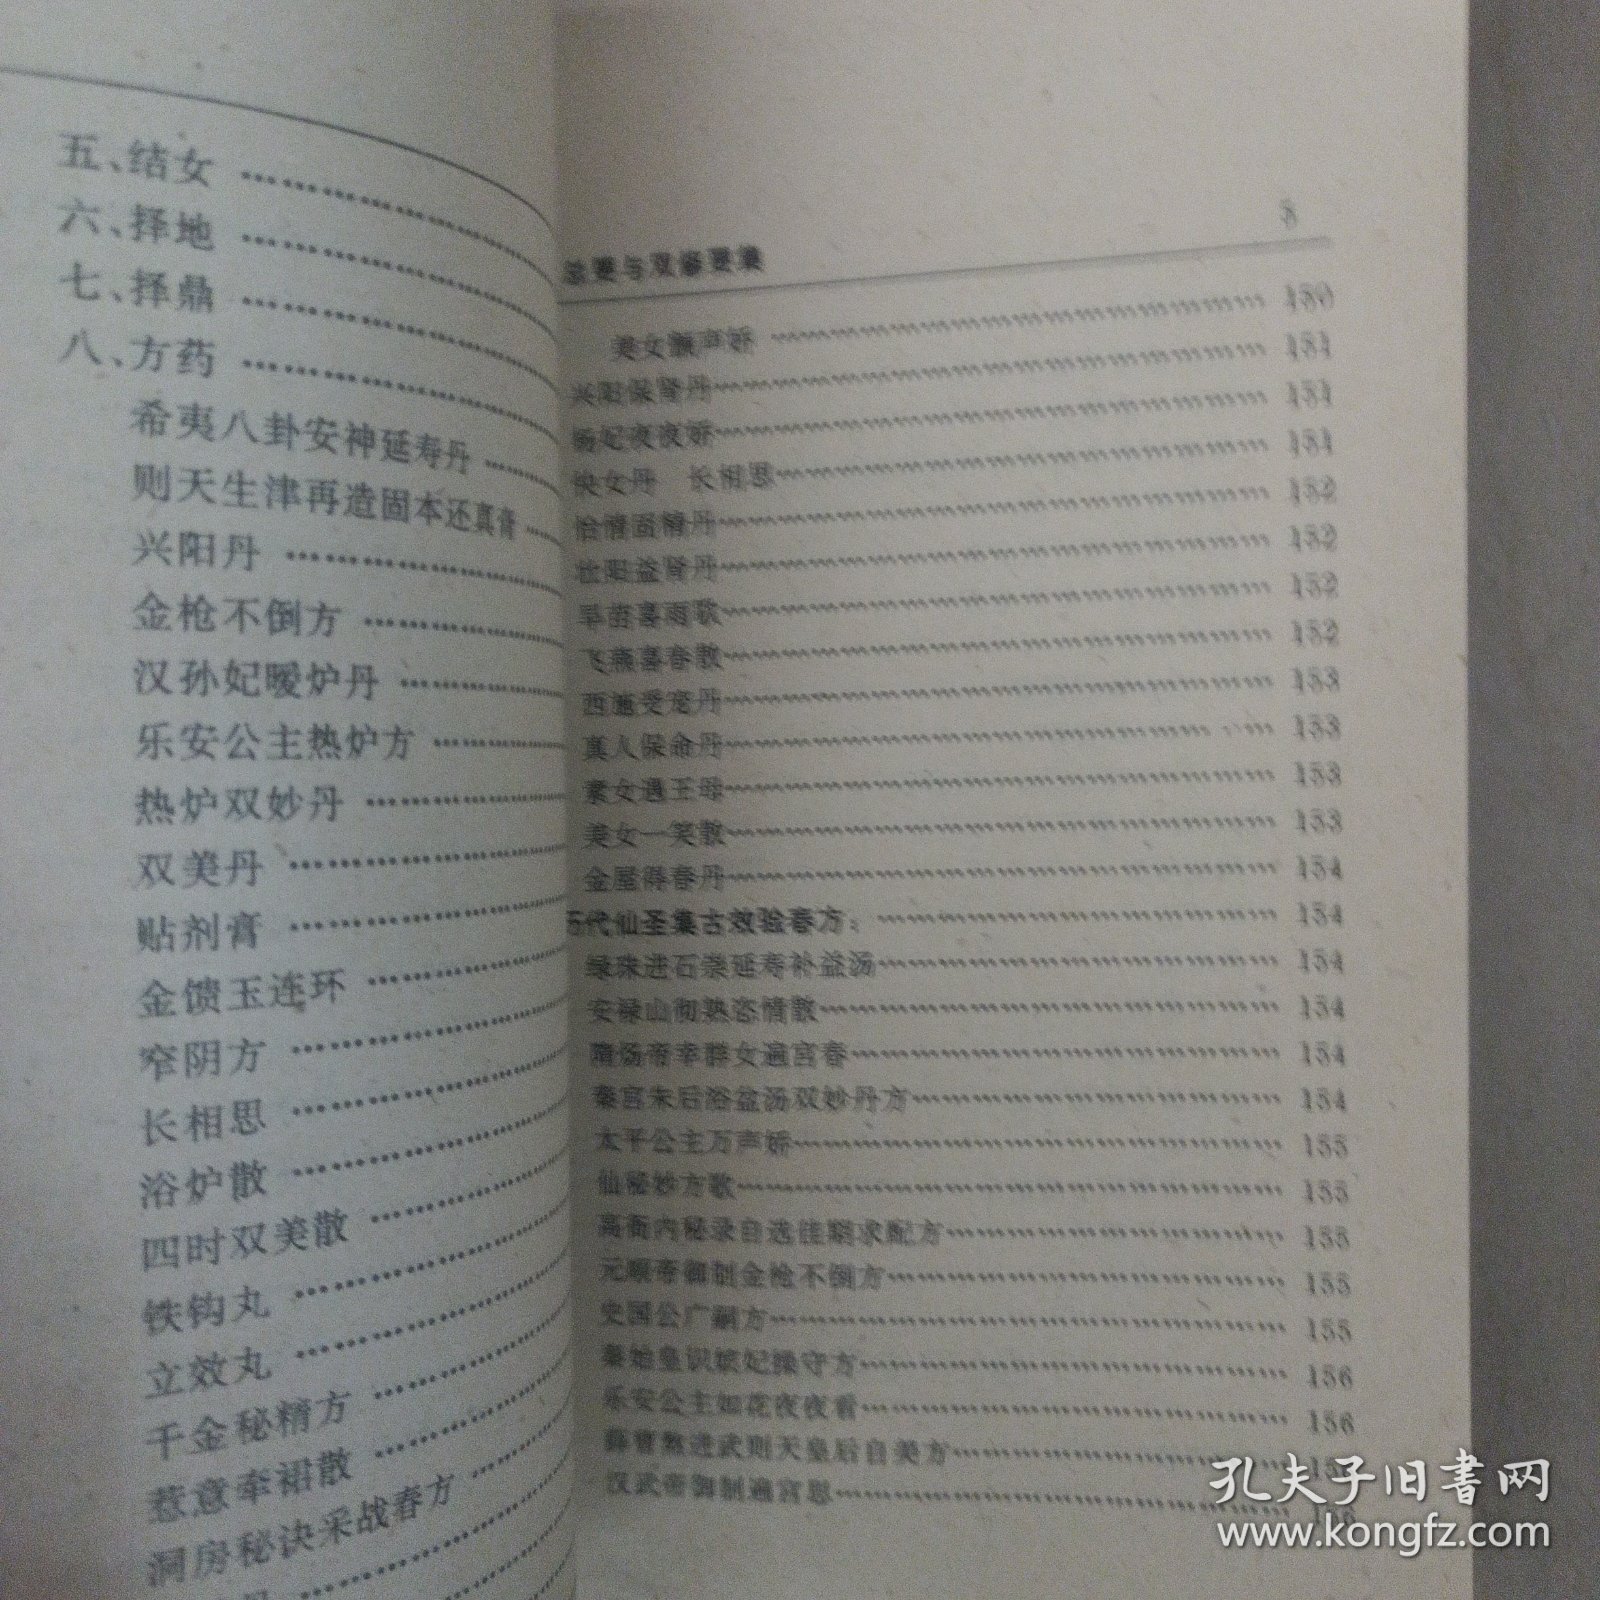 五、结女
六、择地
七、择鼎
八、方药
希夷八卦安神延寿丹
则天生津再造固本还真膏
兴阳丹
金枪不倒方
汉孙妃暖炉丹
乐安公主热炉方
热炉双妙丹
双美丹
贴剂膏
金馈玉连环
窄阴方
长相思
浴炉散
四时双美散
铁钩丸
立效丸
千金秘精方
惹意牵裙散
洞房秘诀采战春方
总要与双修要集
美女颤声娇 150
兴阳保肾丹 151
杨妃夜夜娇 151
快女丹 长相思 151
怡情固精丹 152
壮阳益肾丹 152
旱苗喜雨歌 152
飞燕喜春散 152
西施受宠丹 153
真人保命丹 153
素女遇王母 153
美女一笑散 153
金屋得春丹 154
历代仙圣集古效验春方: 154
绿珠进石崇延寿补益汤 154
安禄山彻热恣情散 154
隋炀帝幸群女遍宫春 154
秦宫朱后浴盆汤双妙丹方 154
太平公主万声娇 155
仙秘妙方歌 155
高衙内秘录自选佳期求配方 155
元顺帝御制金枪不倒方 155
史国公广嗣方 155
秦始皇识嫔妃操守方 156
乐安公主如花夜夜香 156
薛曹敖进武则天皇后自美方
汉武帝御制遍宫思
孔夫子旧书网
www.kongfz.com